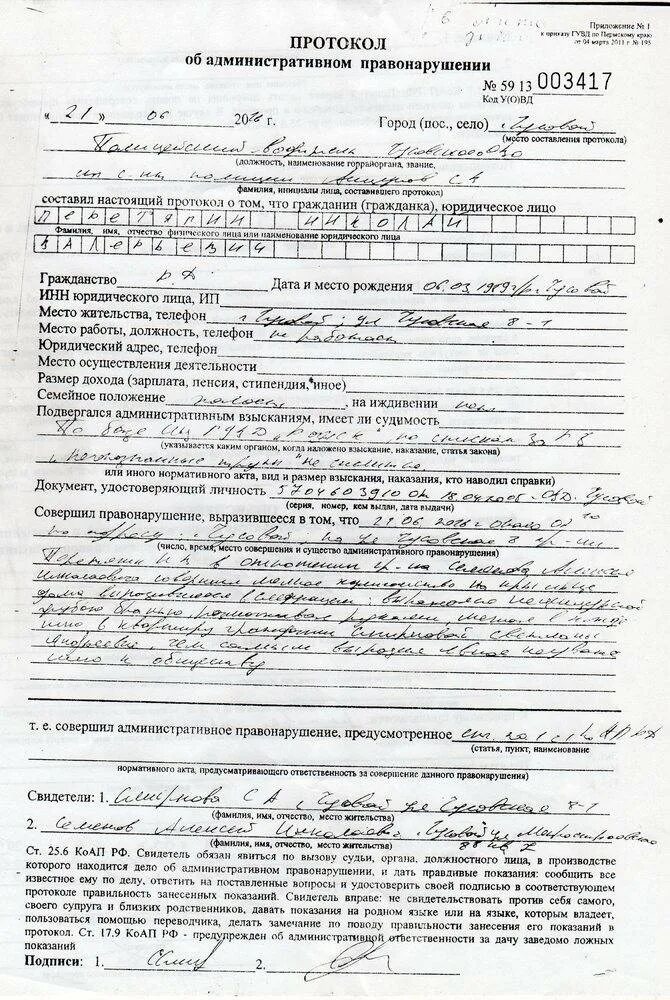 Приложение № 1
к приказу ГУВД по Пермскому краю
от 04 марта 2011 г № 195
ПРОТОКОЛ
об административном правонарушении
№ 59 13 003417
Код У(О)ВД
« 21 » 06 2016 г. Город (пос., село) г. Чусовой
(место составления протокола)
Полицейский
(должность, наименование горрайоргана, звание,
полиции СА
фамилия, инициалы лица, составившего протокол)
составил настоящий протокол о том, что гражданин (гражданка), юридическое лицо
Перетягин Николай
Фамилия, имя, отчество физического лица или наименование юридического лица
Валерьевич
Гражданство Р Ф Дата и место рождения 06.03.1969 г/р г. Чусовой
ИНН юридического лица, ИП
Место жительства, телефон г Чусовой, ул Чусовская 8-1
Место работы, должность, телефон не работает
Юридический адрес, телефон
Место осуществления деятельности
Размер дохода (зарплата, пенсия, стипендия, иное)
Семейное положение холост, на иждивении нет
Подвергался административным взысканиям, имеет ли судимость
По базе ИЦ ГУВД "Розыск" по спискам
(указывается каким органом, когда наложено взыскание, наказание, статья закона)
, неопознанные трупы" не
или иного нормативного акта, вид и размер взыскания, наказания, кто наводил справки)
Документ, удостоверяющий личность 5704603910 от 18.04.2005 ОВД. Чусовой
(серия, номер, кем выдан, дата выдачи)
Совершил правонарушение, выразившееся в том, что 21 06 2016 около
по адресу г. Чусовой, по ул Чусовская 8 гр-нин
(число, время, место совершения и существо административного правонарушения)
Перетягин Н.В. в отношении гр-на Семенова Алексея
Николаевича совершил мелкое хулиганство на крыльце
дома выразившееся в следующем: выражался нецензурной
грубой бранью размахивал руками,
в квартиру гражданки Смирновой Светланы
Андреевне, чем самым выразил явное неуваже-
ние к обществу
т. е. совершил административное правонарушение, предусмотренное ст. 20.1 ч.1 КоАП РФ
(статья, пункт, наименование
нормативного акта, предусматривающего ответственность за совершение данного правонарушения)
Свидетели: 1. Смирнова С А г Чусовой ул Чусовская 8-1
(фамилия, имя, отчество, место жительства)
2. Семенов Алексей Николаевич г. Чусовой ул
(фамилия, имя, отчество, место жительства)
Ст. 25.6 КоАП РФ. Свидетель обязан явиться по вызову судьи, органа, должностного лица, в производстве
которого находится дело об административном правонарушении, и дать правдивые показания: сообщить все
известное ему по делу, ответить на поставленные вопросы и удостоверить своей подписью в соответствующем
протоколе правильность занесенных показаний. Свидетель вправе: не свидетельствовать против себя самого,
своего супруга и близких родственников, давать показания на родном языке или на языке, которым владеет,
пользоваться помощью переводчика, делать замечание по поводу правильности занесения его показаний в
протокол. Ст. 17.9 КоАП РФ - предупрежден об административной ответственности за дачу заведомо ложных
показаний
Подписи: 1. 2.